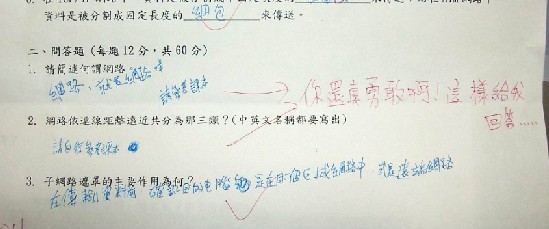 資料是被分割成固定長度的 網包 來傳送。
二、問答題(每題12分,共60分)
1. 請簡述何謂網路
網路,就是網路嘛
請參考課本
你還真勇敢啊!這樣給我
回答......
2. 網路依連線距離遠近共分為那三類?(中英文名稱都要寫出)
請自行參考課本
3. 子網路遮罩的主要作用為何?
在傳輸資料時,確認目的電腦是在本區域網路中 或是遠端網路